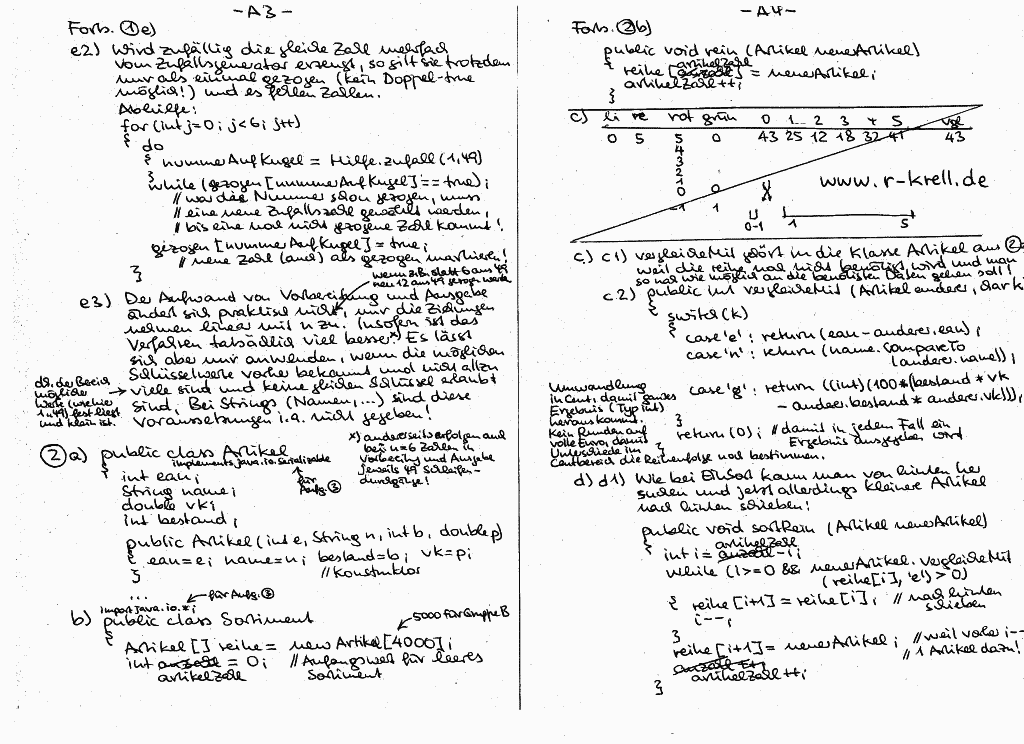 -A3-
Forts. ①e)
e2) Wird zufällig die gleiche Zahl mehrfach
vom Zufallsgenerator erzeugt, so gilt sie trotzdem
nur als einmal gezogen (kein Doppel-true
möglich!) und es fehlen Zahlen.
Abhilfe:
for (int j=0; j<6; j++)
{ do
{ nummerAufKugel = Hilfe.zufall(1,49)
}
while (gezogen[nummerAufKugel]==true);
// war die Nummer schon gezogen, muss
// eine neue Zufallszahl gewählt werden,
// bis eine noch nicht gezogene Zahl kommt!
gezogen[nummerAufKugel]=true;
// neue Zahl (auch) als gezogen markieren!
}
wenn z.B. statt 6 aus 49
neu 12 aus 49 gezogen werden
e3) Der Aufwand von Vorbereitung und Ausgabe
ändert sich praktisch nicht, nur die Ziehungen
nehmen linear mit n zu. Insofern ist das
Verfahren tatsächlich viel besser.*) Es lässt
sich aber nur anwenden, wenn die möglichen
Schlüsselwerte vorher bekannt und nicht allzu
viele sind und keine gleichen Schlüssel erlaubt
sind. Bei Strings (Namen,...) sind diese
Voraussetzungen i.a. nicht gegeben!
d.h. der Bereich
möglicher
Werte (wie hier
1..49) fest liegt
und klein ist.
*) andererseits erfolgen auch
bei n=6 Zahlen in
Vorbereitung und Ausgabe
jeweils 49 Schleifen-
durchgänge!
② a) public class Artikel
implements java.io.Serializable
für
Aufg. ③
{ int ean;
String name;
double vk;
int bestand;
public Artikel (int e, String n, int b, double p)
{ ean=e; name=n; bestand=b; vk=p;
} // Konstruktor
...
import java.io.*; für Aufg. ③
b) public class Sortiment
5000 für Gruppe B
{
Artikel [] reihe = new Artikel[4000];
int anzahl = 0; // Anfangswert für leeres
artikelZahl Sortiment
-A4-
Forts. ②b)
public void rein (Artikel neuerArtikel)
artikelZahl
{ reihe [anzahl] = neuerArtikel;
artikelZahl++;
}
c) li re rot grün 0 1.. 2 3 4 5 vgl
0 5 5 0 43 25 12 18 32 41 43
4
3
2
1
0 0
-1 1
0-1 1 5
www.r-krell.de
c) c1) vergleicheMit gehört in die Klasse Artikel aus ②a
weil die reihe noch nicht benötigt wird und man
so nah wie möglich an die benötigten Daten gehen soll!
c2) public int vergleicheMit (Artikel anderer, char k
{ switch(k)
{ case 'e': return (ean - anderer.ean);
case 'n': return (name.compareTo
(anderer.name));
case 'g': return ((int)(100*(bestand * vk
- anderer.bestand * anderer.vk)));
}
return (0); // damit in jedem Fall ein
Ergebnis ausgegeben wird
}
Umwandlung
in Cent, damit ganzes
Ergebnis (Typ int)
herauskommt.
Kein Runden auf
volle Euro, damit
Unterschiede im
Centbereich die Reihenfolge noch bestimmen.
d) d1) Wie bei EinSort kann man von hinten her
suchen und jetzt allerdings kleinere Artikel
nach hinten schieben:
public void sortRein (Artikel neuerArtikel)
artikelZahl
{ int i = anzahl-1;
while (i>=0 && neuerArtikel.vergleicheMit
(reihe[i], 'e') > 0)
{ reihe [i+1] = reihe[i]; // nach hinten
i--; schieben
}
reihe [i+1] = neuerArtikel; // weil vorher i--
anzahl++; // 1 Artikel dazu!
artikelZahl++;
}